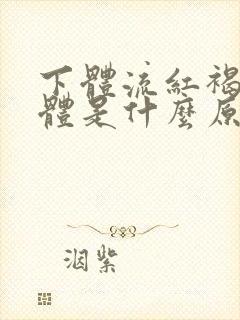 下體流紅褐
體是什麼原
洇紫